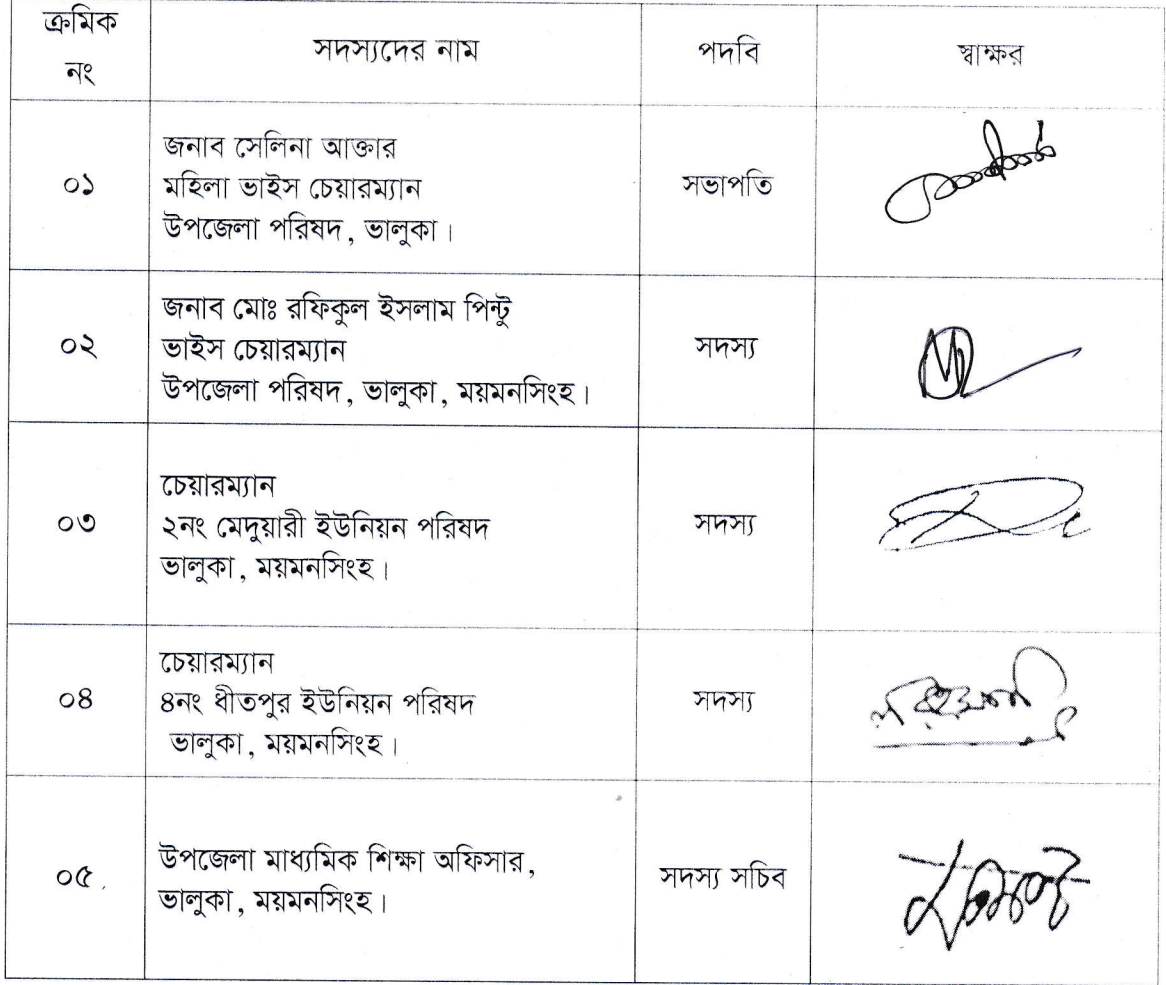 ক্রমিক
নং
সদস্যদের নাম
পদবি
স্বাক্ষর
০১
জনাব সেলিনা আক্তার
মহিলা ভাইস চেয়ারম্যান
উপজেলা পরিষদ, ভালুকা।
সভাপতি
০২
জনাব মোঃ রফিকুল ইসলাম পিন্টু
ভাইস চেয়ারম্যান
উপজেলা পরিষদ, ভালুকা, ময়মনসিংহ।
সদস্য
০৩
চেয়ারম্যান
২নং মেদুয়ারী ইউনিয়ন পরিষদ
ভালুকা, ময়মনসিংহ।
সদস্য
০৪
চেয়ারম্যান
৪নং ধীতপুর ইউনিয়ন পরিষদ
ভালুকা, ময়মনসিংহ।
সদস্য
০৫.
উপজেলা মাধ্যমিক শিক্ষা অফিসার,
ভালুকা, ময়মনসিংহ।
সদস্য সচিব